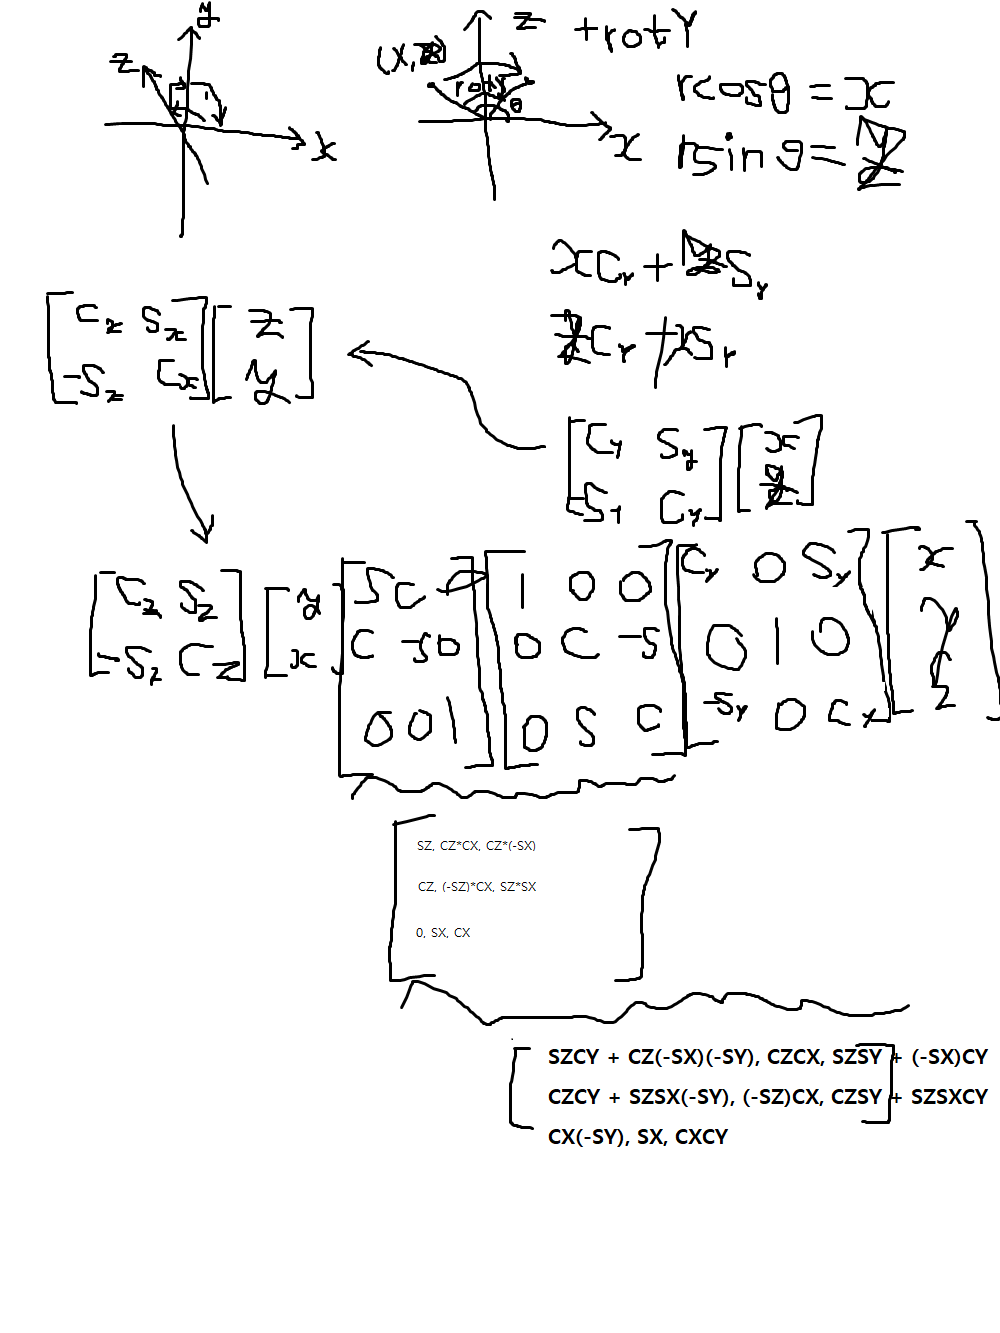 y
z
x
z +rotY
(x,
rotY
θ
x
rcosθ = x
rsinθ = z
xCY + zSY
zCY + xSY
Cx Sx z
-Sz Cx y
Cy Sy x
-SY CY z
Cz Sz y
-Sz Cz x
S C 0 1 0 0 Cy 0 Sy x
C -S 0 0 C -S 0 1 0 y
0 0 1 0 S C -Sy 0 Cx z
SZ, CZ*CX, CZ*(-SX)
CZ, (-SZ)*CX, SZ*SX
0, SX, CX
SZCY + CZ(-SX)(-SY), CZCX, SZSY + (-SX)CY
CZCY + SZSX(-SY), (-SZ)CX, CZSY + SZSXCY
CX(-SY), SX, CXCY